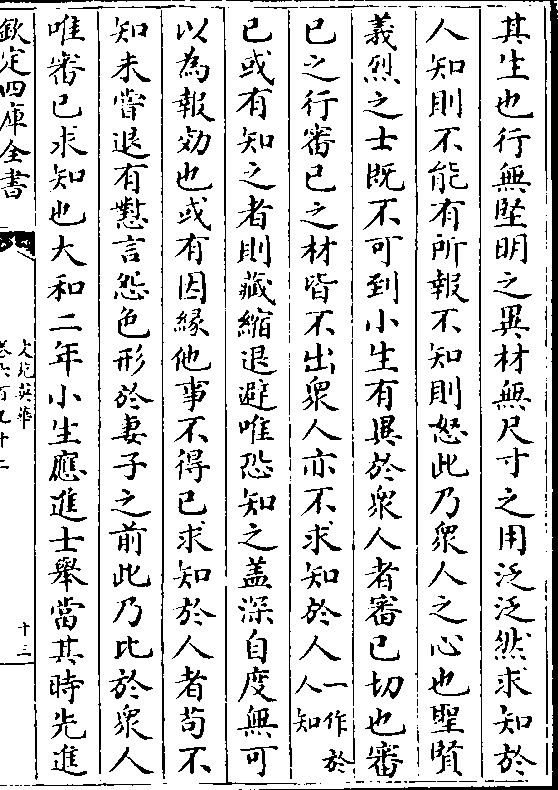 其生也行無堅明之異材無尺寸之用泛泛然求知於
人知則不能有所報不知則怒此乃衆人之心也聖賢
義烈之士既不可到小生有異於衆人者審已切也審
已之行審已之材皆不出衆人亦不求知於人一作於人知
已或有知之者則藏縮退避唯恐知之盖深自度無可
以為報効也或有因緣他事不得已求知於人者苟不
知未嘗退有懟言怨色形於妻子之前此乃比於衆人
唯審已求知也大和二年小生應進士舉當其時先進
欽定四庫全書
文苑英華
卷六百九十二
十三